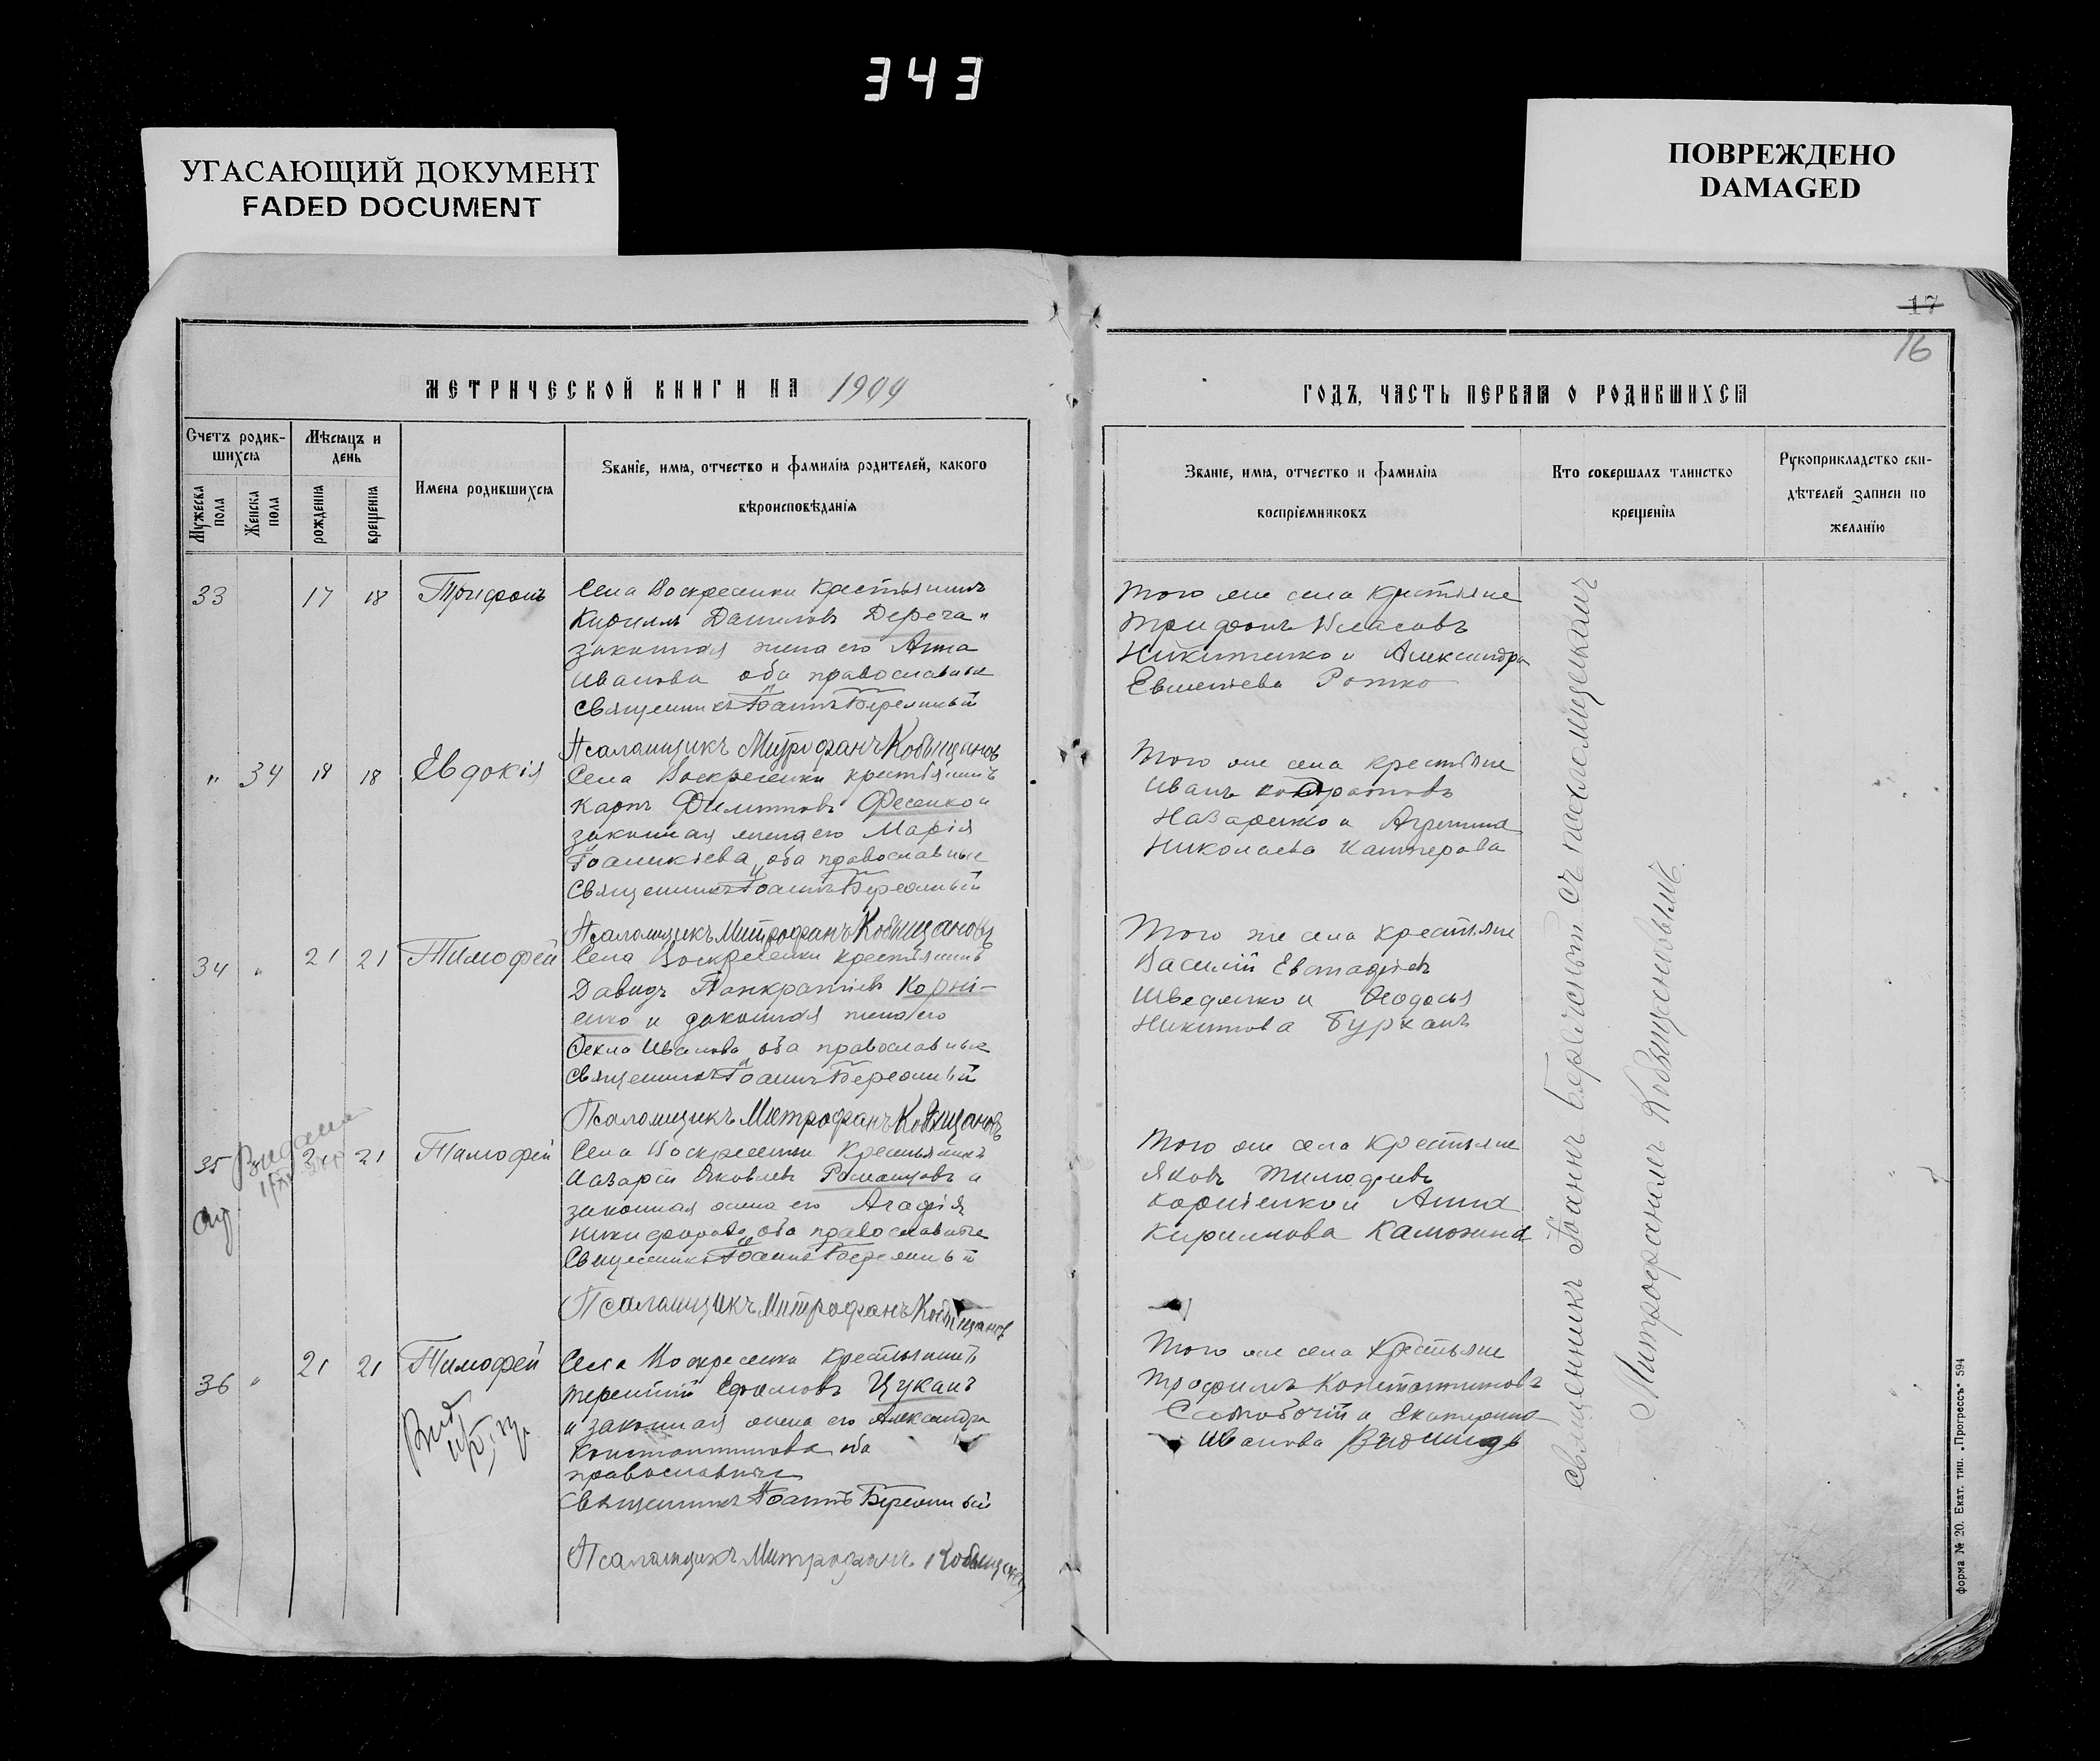 343
УГАСАЮЩИЙ ДОКУМЕНТ
FADED DOCUMENT
ПОВРЕЖДЕНО
DAMAGED
17
16
МЕТРИЧЕСКОЙ КНИГИ НА 1909
Счетъ родив-
шихся
Мужеска
пола
Женска
пола
Мѣсяцъ и
день
рожденія
крещенія
Имена родившихся
Званіе, имя, отчество и фамилія родителей, какого
вѣроисповѣданія
33 17 18 Трифонъ
Села Воскресенки крестьянинъ
Кириллъ Даниловъ Дереча и
законная жена его Анна
Иванова оба православные
Священникъ Іоаннъ Бережный
Псаломщикъ Митрофанъ Кобыщановъ
" 34 18 18 Евдокія
Села Воскресенки крестьянинъ
Карпъ Филипповъ Фесенко и
законная жена его Марія
Іоаникіева оба православные
Священникъ Іоаннъ Бережный
Псаломщикъ Митрофанъ Кобыщановъ
34 " 21 21 Тимофей
Села Воскресенки крестьянинъ
Давидъ Панкратіевъ Корні-
енко и законная жена его
Фекла Иванова оба православные
Священникъ Іоаннъ Бережный
Псаломщикъ Митрофанъ Кобыщановъ
35 21 21 Тимофей
Села Воскресенки крестьянинъ
Назарій Яковлевъ Романцовъ и
законная жена его Агафія
Никифорова оба православные
Священникъ Іоаннъ Бережный
Псаломщикъ Митрофанъ Кобыщановъ
36 " 21 21 Тимофей
Села Воскресенки крестьянинъ
Терентій Ефимовъ Цуканъ
и законная жена его Александра
Константинова оба
православные
Священникъ Іоаннъ Бережный
Псаломщикъ Митрофанъ Кобыщановъ
ГОДЪ, ЧАСТЬ ПЕРВАЯ О РОДИВШИХСЯ
Званіе, имя, отчество и фамилія
воспріемниковъ
Кто совершалъ таинство
крещенія
Рукоприкладство сви-
дѣтелей записи по
желанію
Того же села крестьяне
Трифонъ Власовъ
Никитенко и Александра
Евменіева
Того же села крестьяне
Иванъ
Назаренко и Агрипина
Николаева
Того же села крестьяне
Василій Евстафіевъ
Шведенко и Феодосія
Никитова Бурханъ
Того же села крестьяне
Яковъ Тимофеевъ
Корніенко и Анна
Кириллова
Того же села крестьяне
Трофимъ Константиновъ
и Екатерина
Иванова
Священникъ Іоаннъ Бережный съ псаломщикомъ
Митрофаномъ Кобыщановымъ.
форма № 20. Екат. тип. „Прогрессъ" 594